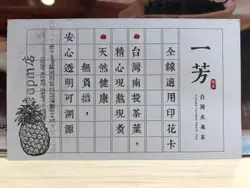 一芳
台灣水果茶
全線適用印花卡
台灣南投茶葉，
精心現熬現
天然健康
無負擔，
安心透明可溯源